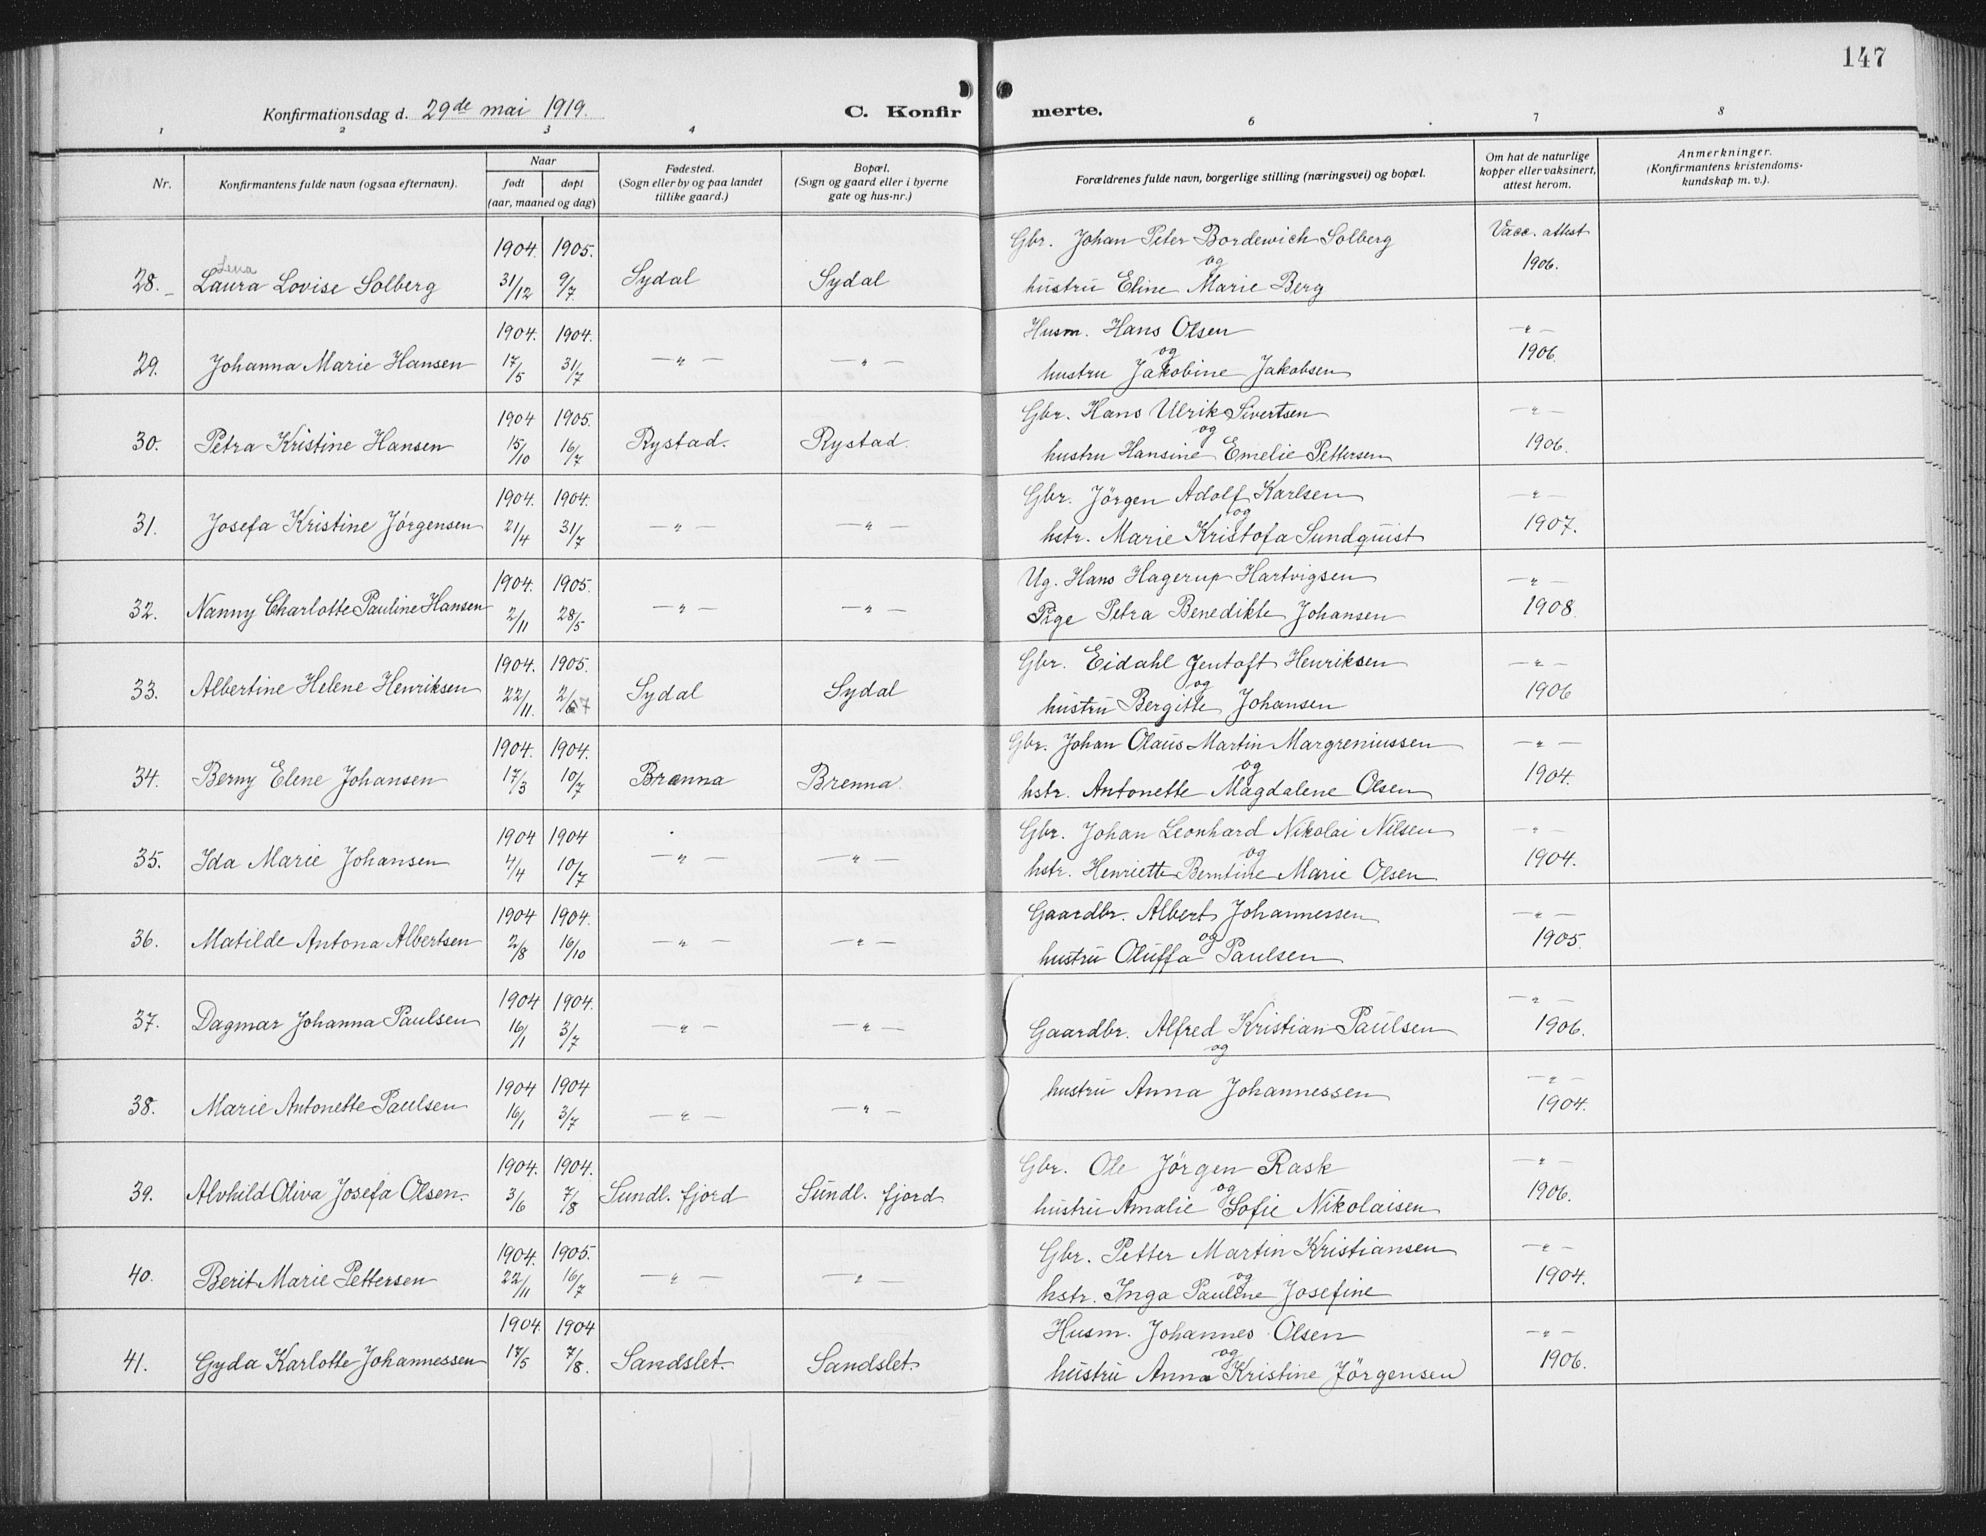 147
Konfirmationsdag d. 29de mai 1919.
C. Konfirmerte.
1 2 3 4 6 7 8
Nr.
Konfirmantens fulde navn (ogsaa efternavn).
Naar
født døpt
(aar, maaned og dag)
Fødested.
(Sogn eller by og paa landet
tillike gaard.)
Bopæl.
(Sogn og gaard eller i byerne
gate og hus-nr.)
Forældrenes fulde navn, borgerlige stilling (næringsvei) og bopæl.
Om hat de naturlige
kopper eller vaksinert,
attest herom.
Anmerkninger.
(Konfirmantens kristendoms-
kundskap m. v.).
1904. 1905. Gbr. Johan Peter Bordewich Solberg Vacc. attest
Lena og 1906.
28. Laura Lovise Solberg 31/12 9/7 Sydal Sydal hustru Eline Marie Berg
1904. 1904. Husm. Hans Olsen -"-
og 1906.
29. Johanna Marie Hansen 17/5 31/7 -"- -"- hustru Jakobine Jakobsen
1904 1905. Gbr. Hans Ulrik Sivertsen -"-
og 1906.
30. Petra Kristine Hansen 15/10 16/7 Rystad. Rystad. hustru Hansine Emelie Pettersen
1904. 1904. Gbr. Jörgen Adolf Karlsen -"-
og 1907.
31. Josefa Kristine Jørgensen 21/4 31/7 -"- -"- hstr. Marie Kristofa Sundquist
1904. 1905. Ug. Hans Hagerup Hartvigsen -"-
32. Nanny Charlotte Pauline Hansen 2/11 28/5 -"- -"- Pige Petra Benedikte Johansen 1908.
1904. 1905. Gbr. Eidahl Jentoft Henriksen -"-
og 1906
33. Albertine Helene Henriksen 22/11. 2/67 Sydal Sydal hustru Bergitte Johansen
1904. 1904. Gbr. Johan Olaus Martin Margreniussen -"-
og 1904.
34. Berny Elene Johansen 17/3 10/7 Brenna Brenna. hstr. Antonette Magdalene Olsen
1904 1904 Gbr. Johan Leonhard Nikolai Nilsen -"-
og 1904.
35. Ida Marie Johansen 4/4 10/7 -"- -"- hstr. Henriette Berntine Marie Olsen
1904 1904. Gaardbr. Albert Johannessen -"-
og 1905.
36. Matilde Antona Albertsen 2/8 16/10 -"- -"- hustru Oluffa Paulsen
1904 1904. -"-
37. Dagmar Johanna Paulsen 16/1 3/7 -"- -"- Gaardbr. Alfred Kristian Paulsen 1906.
og
1904 1904 -"-
38. Marie Antonette Paulsen 16/1 3/7 -"- -"- hustru Anna Johannessen 1904.
1904. 1904. Gbr. Ole Jörgen Rask -"-
og 1906.
39. Alvhild Oliva Josefa Olsen. 3/6 7/8 Sundl. fjord Sundl. fjord hustru Amalie Sofie Nikolaisen
1904. 1905. Gbr. Petter Martin Kristiansen -"-
og 1904.
40. Berit Marie Pettersen 22/11 16/7 -"- -"- hstr. Inga Pauline Josefine
1904. 1904 Husm. Johannes Olsen -"-
og 1906.
41. Gyda Karlotte Johannessen 17/5 7/8. Sandslet. Sandslet. hustru Anna Kristine Jörgensen